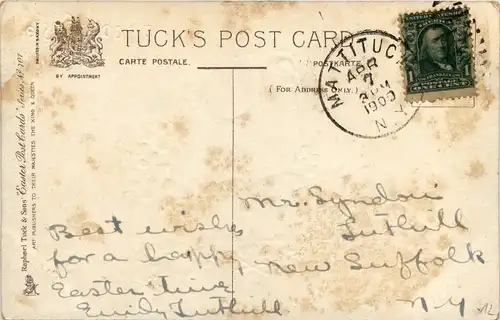 TUCK'S POST CARD
CARTE POSTALE. POSTKARTE.
BY APPOINTMENT
(FOR ADDRESS ONLY.)
MATTITUCK
APR
7
1909
N.Y.
Raphael Tuck & Sons' "Easter Post Cards" Series No 707
ART PUBLISHERS TO THEIR MAJESTIES THE KING & QUEEN
Best wishes
for a happy
Easter time
Emily Tuthill
Mr. Lyndon
Tuthill
New Suffolk
N Y